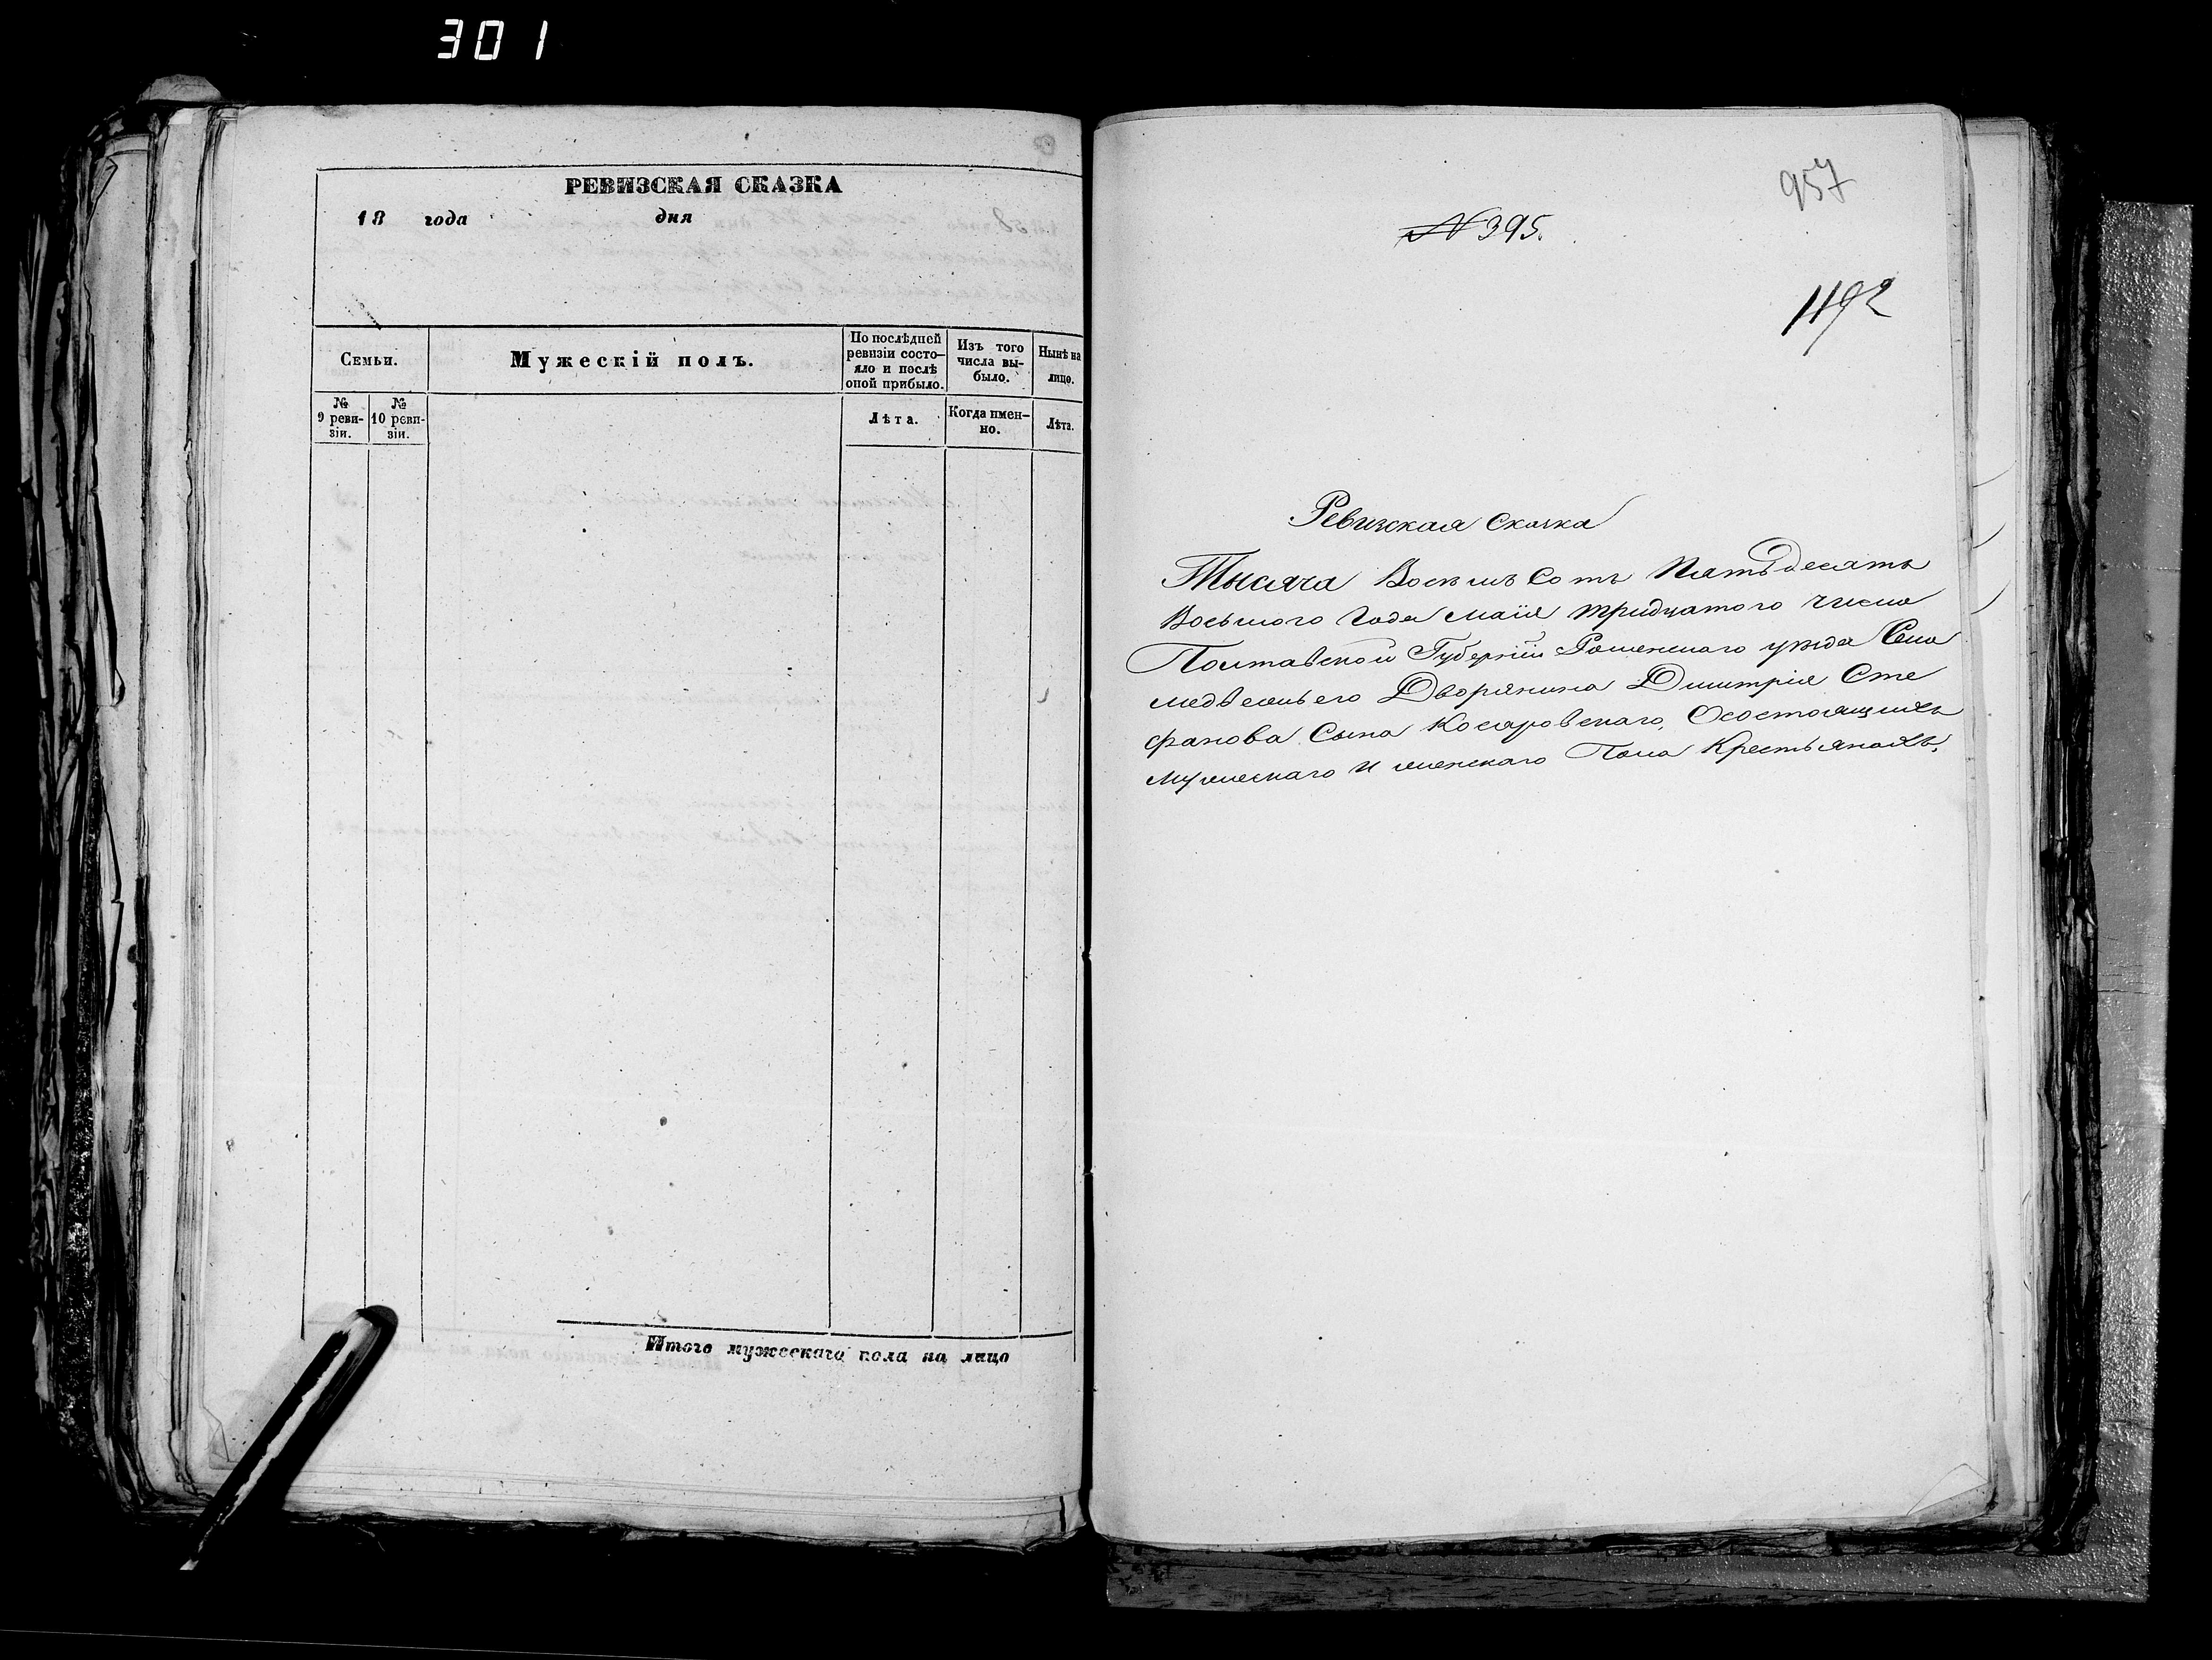 301
РЕВИЗСКАЯ СКАЗКА
18 года дня
Семьи.
Мужескій полъ.
По послѣдней
ревизіи состо-
яло и послѣ
оной прибыло.
Изъ того
числа вы-
было.
Нынѣ на
лицо.
№
9 реви-
зіи.
№
10 реви-
зіи.
Лѣта.
Когда имен-
но.
Лѣта.
Итого мужескаго пола на лицо
957
№ 395.
1192
Ревизская сказка
Тысяча Восемь Сотъ Пятьдесятъ
Восьмого Года Маія тридцатого числа
Полтавской Губерніи Роменскаго уѣзда Села
медвежьего Дворянина Дмитрія Сте
фанова Сына Косяровскаго, Осостоящихъ
мужескаго и женскаго Пола Крестьянахъ.